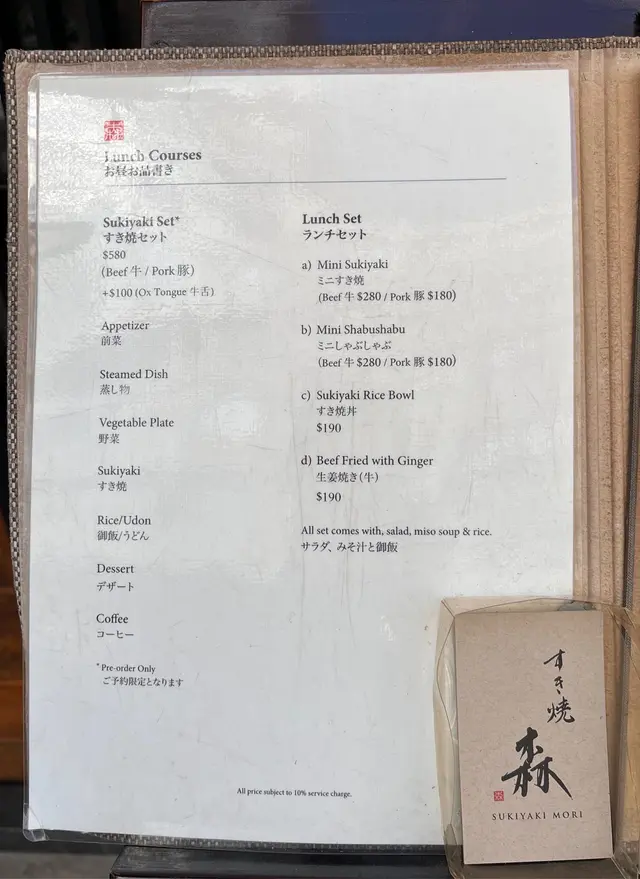 Lunch Courses
お昼お品書き
Sukiyaki Set*
すき焼セット
$580
(Beef 牛 / Pork 豚)
+$100 (Ox Tongue 牛舌)
Appetizer
前菜
Steamed Dish
蒸し物
Vegetable Plate
野菜
Sukiyaki
すき焼
Rice/Udon
御飯/うどん
Dessert
デザート
Coffee
コーヒー
* Pre-order Only
ご予約限定となります
Lunch Set
ランチセット
a) Mini Sukiyaki
ミニすき焼
(Beef 牛 $280 / Pork 豚 $180)
b) Mini Shabushabu
ミニしゃぶしゃぶ
(Beef 牛 $280 / Pork 豚 $180)
c) Sukiyaki Rice Bowl
すき焼丼
$190
d) Beef Fried with Ginger
生姜焼き(牛)
$190
All set comes with, salad, miso soup & rice.
サラダ、みそ汁と御飯
All price subject to 10% service charge.
すき焼
森
SUKIYAKI MORI